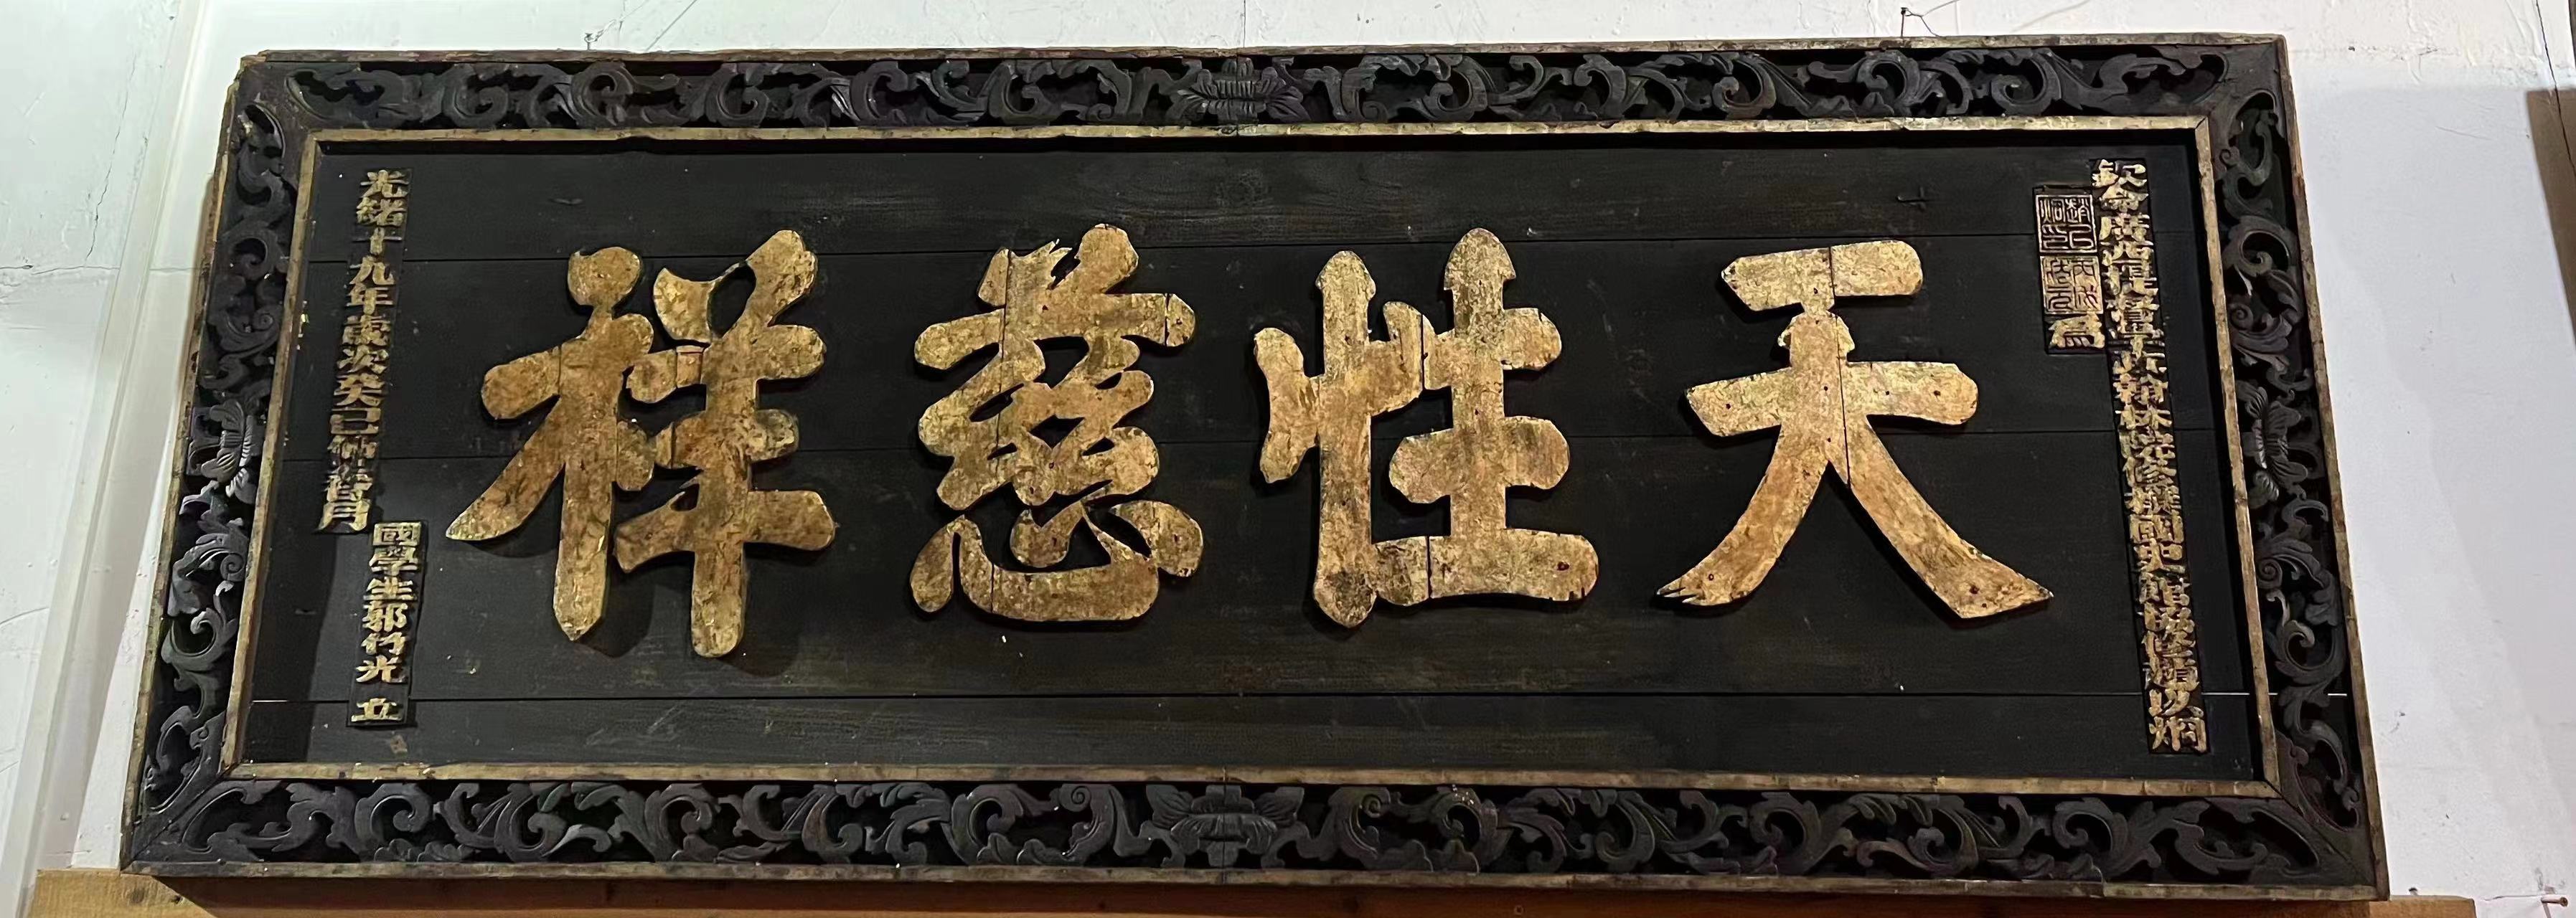 欽命廣西提督學政翰林院修撰國史館協修趙以烱
為
天性慈祥
光緒十九年歲次癸巳仲春月
國學生郭竹光 立